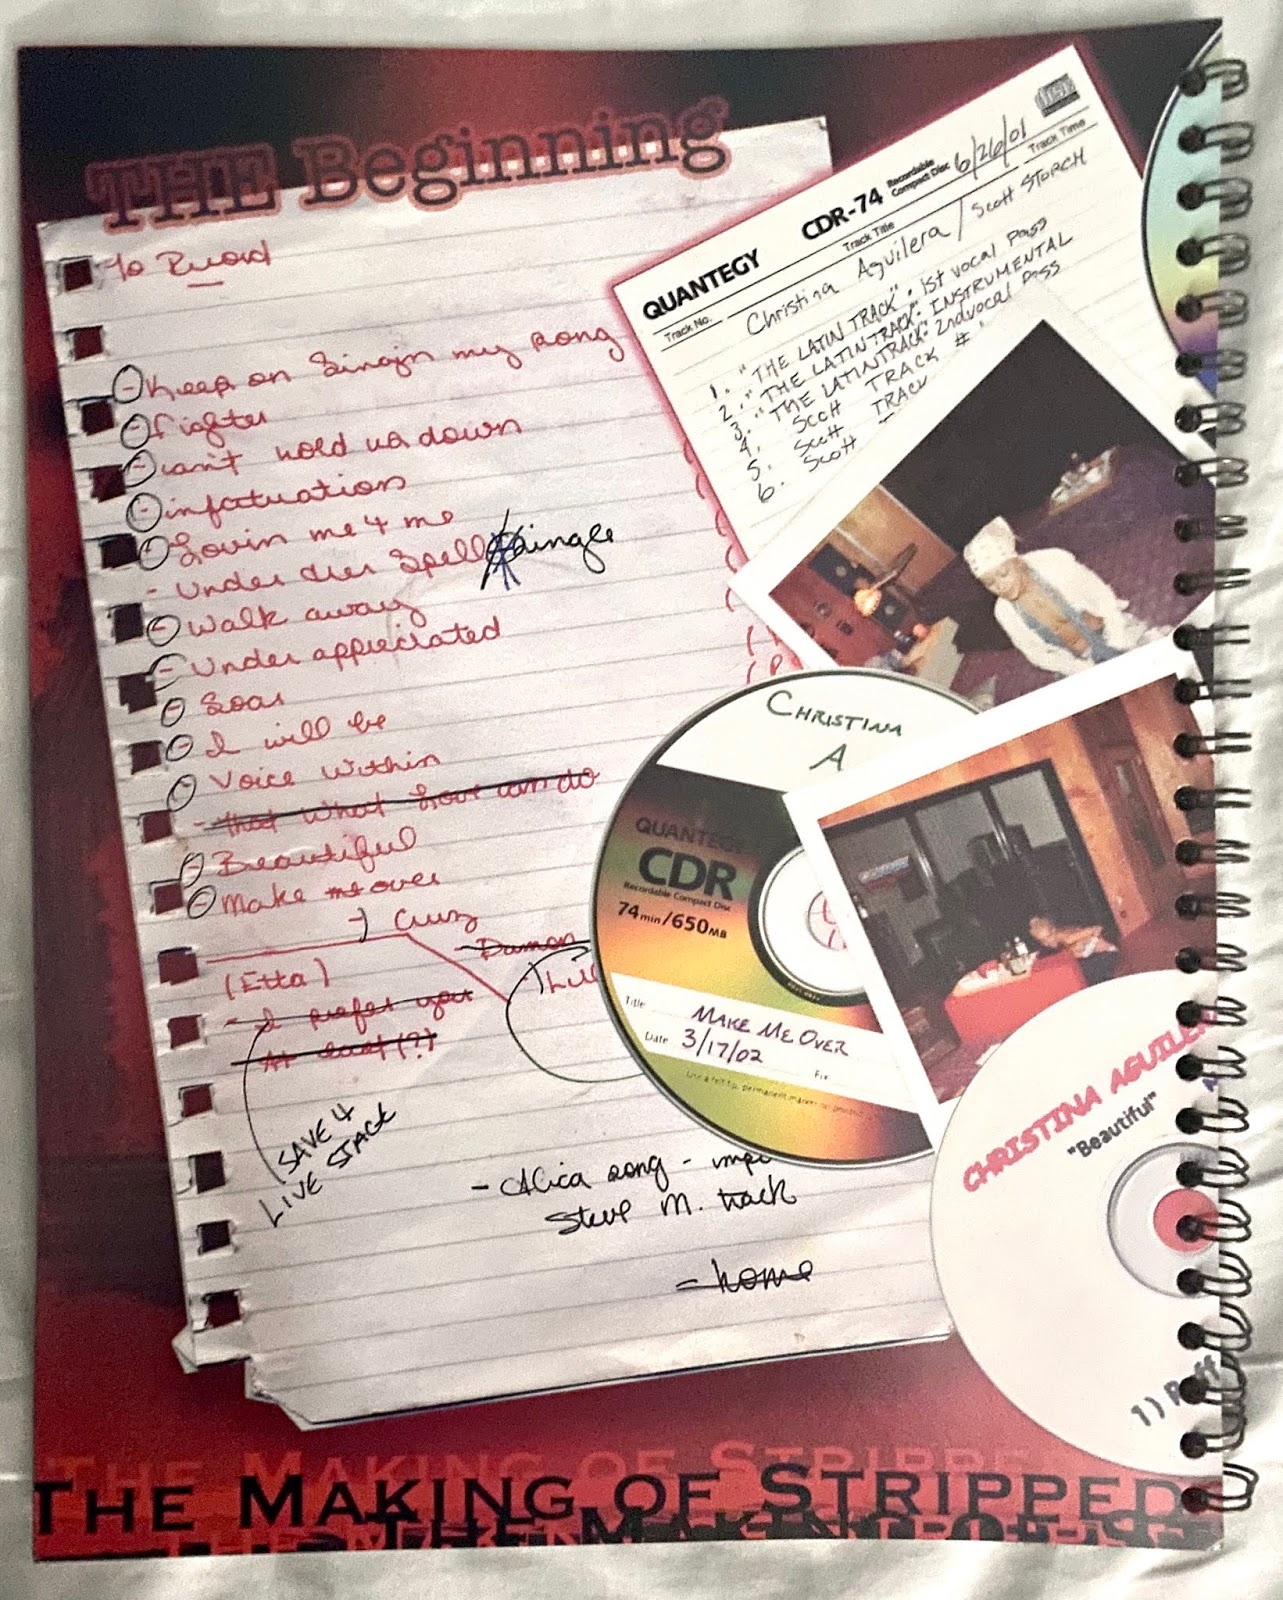 THE Beginning
To Record
- Keep on Singin my song
- fighter
- can't hold us down
- infatuation
- Lovin me 4 me
- Under der Spell * single
- Walk away
- Under appreciated
- Soar
- I will be
- Voice within
- that What Love can do
- Beautiful
- Make me over
(Etta)
- I prefer you
At last (?)
SAVE 4
LIVE STAGE
- Alica song -
Steve M. track
- home
QUANTEGY CDR-74 Recordable Compact Disc 6/26/01
Track No. Track Title Track Time
Christina Aguilera / Scott STORCH
1. "THE LATIN TRACK" . 1st vocal pass
2. "THE LATIN TRACK": INSTRUMENTAL
3. "THE LATIN TRACK" 2nd vocal pass
4. Scott TRACK #
5. Scott TRACK
6. Scott
CHRISTINA
A
QUANTEGY
CDR
Recordable Compact Disc
74min/650MB
Title MAKE ME OVER
Date 3/17/02
CHRISTINA AGUILER
"Beautiful"
1)
THE MAKING OF STRIPPE
THE MAKING OF STRIPPED
THE MAKING OF ST